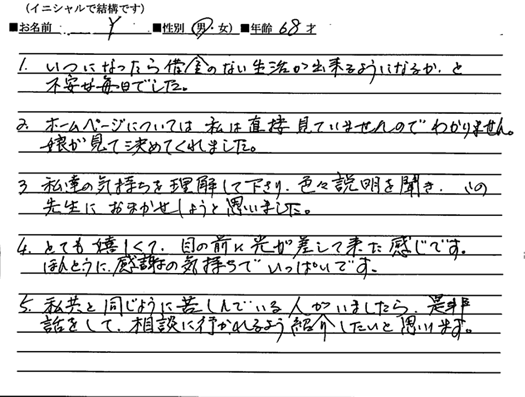 (イニシャルで結構です)
■お名前 Y ■性別(男・女) ■年齢 68 才
1. いつになったら借金のない生活が出来るようになるか、と
不安な毎日でした。
2. ホームページについては私は直接見ていませんのでわかりません。
娘が見て決めてくれました。
3 私達の気持ちを理解して下さり、色々説明を聞き、この
先生におまかせしようと思いました。
4. とても嬉しくて、目の前に光が差して来た感じです。
ほんとうに感謝の気持ちでいっぱいです。
5. 私共と同じように苦しんでいる人がいましたら、是非
話をして、相談に行かれるよう紹介したいと思います。